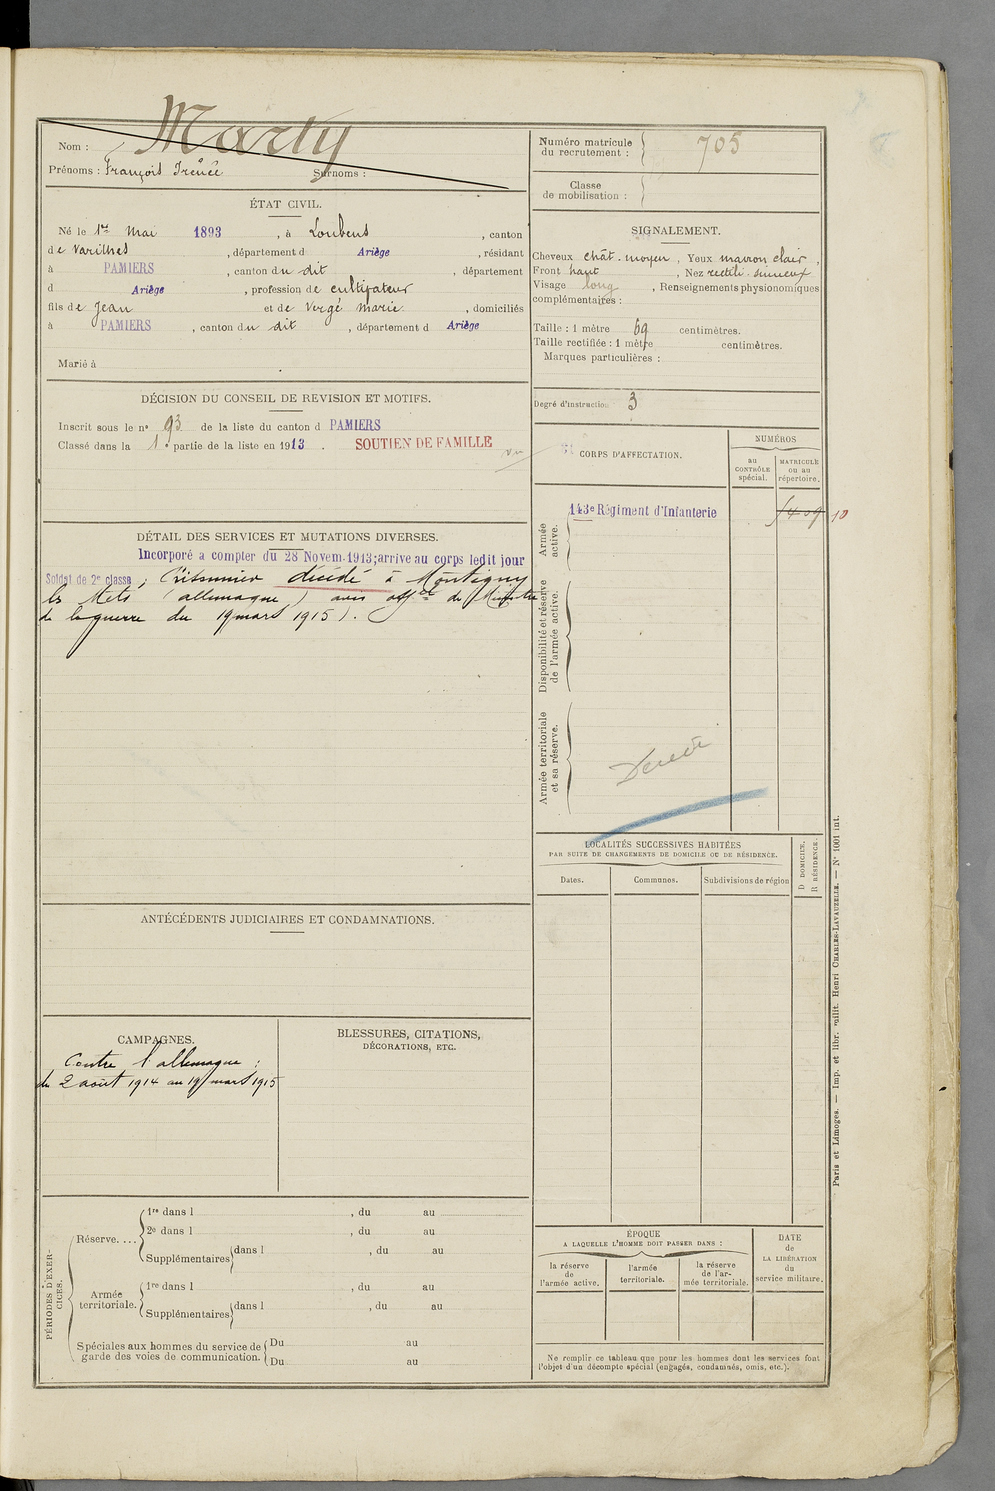 Marty
Nom :
Prénoms : François Irénée Surnoms :
Numéro matricule
du recrutement : 705
Classe
de mobilisation :
ÉTAT CIVIL.
Né le 1er Mai 1893, à Loubens, canton
de Varilhes, département d Ariège, résidant
à PAMIERS, canton du dit, département
d Ariège, profession de cultivateur
fils de Jean et de Vergé Marie, domiciliés
à PAMIERS, canton du dit, département d Ariège
Marié à
SIGNALEMENT.
Cheveux chât. moyen, Yeux marron clair,
Front haut, Nez rectili. sinueux
Visage long, Renseignements physionomiques
complémentaires :
Taille : 1 mètre 69 centimètres.
Taille rectifiée : 1 mètre centimètres.
Marques particulières :
Degré d'instruction 3
DÉCISION DU CONSEIL DE REVISION ET MOTIFS.
Inscrit sous le no 93 de la liste du canton d PAMIERS
Classé dans la 1e partie de la liste en 1913. SOUTIEN DE FAMILLE
CORPS D'AFFECTATION.
NUMÉROS
au
CONTRÔLE
spécial.
MATRICULE
ou au
répertoire.
Armée
active.
143e Régiment d'Infanterie
10
Disponibilité et réserve
de l'armée active.
Armée territoriale
et sa réserve.
DÉTAIL DES SERVICES ET MUTATIONS DIVERSES.
Incorporé à compter du 28 Novem. 1913; arrivé au corps ledit jour
Soldat de 2e classe; Prisonnier décédé à Montigny
les Metz (allemagne) avis offel du Ministre
de la guerre du 19 mars 1915).
LOCALITÉS SUCCESSIVES HABITÉES
PAR SUITE DE CHANGEMENTS DE DOMICILE OU DE RÉSIDENCE.
Dates.
Communes.
Subdivisions de région
D DOMICILE.
R RÉSIDENCE.
ANTÉCÉDENTS JUDICIAIRES ET CONDAMNATIONS.
CAMPAGNES.
Contre l'allemagne :
du 2 août 1914 au 19 mars 1915
BLESSURES, CITATIONS,
DÉCORATIONS, ETC.
PÉRIODES D'EXER-
CICES.
Réserve. ...
1re dans l , du au
2e dans l , du au
Supplémentaires dans l , du au
Armée
territoriale.
1re dans l , du au
Supplémentaires dans l , du au
Spéciales aux hommes du service de
garde des voies de communication.
Du au
Du au
ÉPOQUE
A LAQUELLE L'HOMME DOIT PASSER DANS :
la réserve
de
l'armée active.
l'armée
territoriale.
la réserve
de l'ar-
mée territoriale.
DATE
de
LA LIBÉRATION
du
service militaire.
Ne remplir ce tableau que pour les hommes dont les services font
l'objet d'un décompte spécial (engagés, condamnés, omis, etc.).
Paris et Limoges. — Imp. et libr. milit. Henri CHARLES-LAVAUZELLE. — No 1001 int.